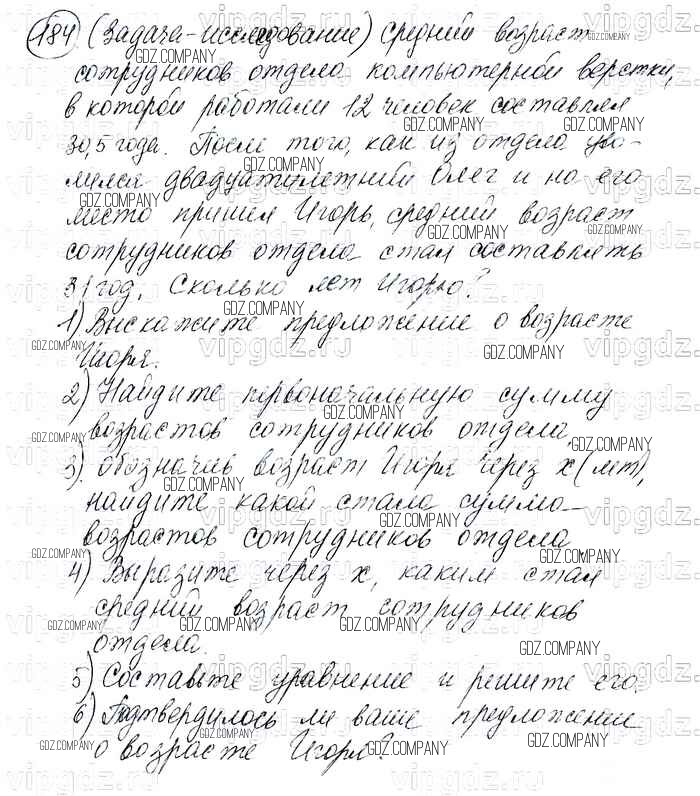 184 (Задача-исследование) Средний возраст
сотрудников отдела компьютерной верстки,
в которой работали 12 человек составлял
30,5 года. После того, как из отдела уво-
лился двадцатилетний Олег и на его
место пришел Игорь, средний возраст
сотрудников отдела стал составлять
31 год. Сколько лет Игорю?
1) Выскажите предложение о возрасте
Игоря.
2) Найдите первоначальную сумму
возрастов сотрудников отдела.
3). обозначив возраст Игоря через x (лет),
найдите какой стала сумма
возрастов сотрудников отдела.
4) Выразите через x, каким стал
средний возраст сотрудников
отдела.
5) Составьте уравнение и решите его.
6) Подтвердилось ли ваше предложение
о возрасте Игоря?
GDZ.COMPANY
vipgdz.ru